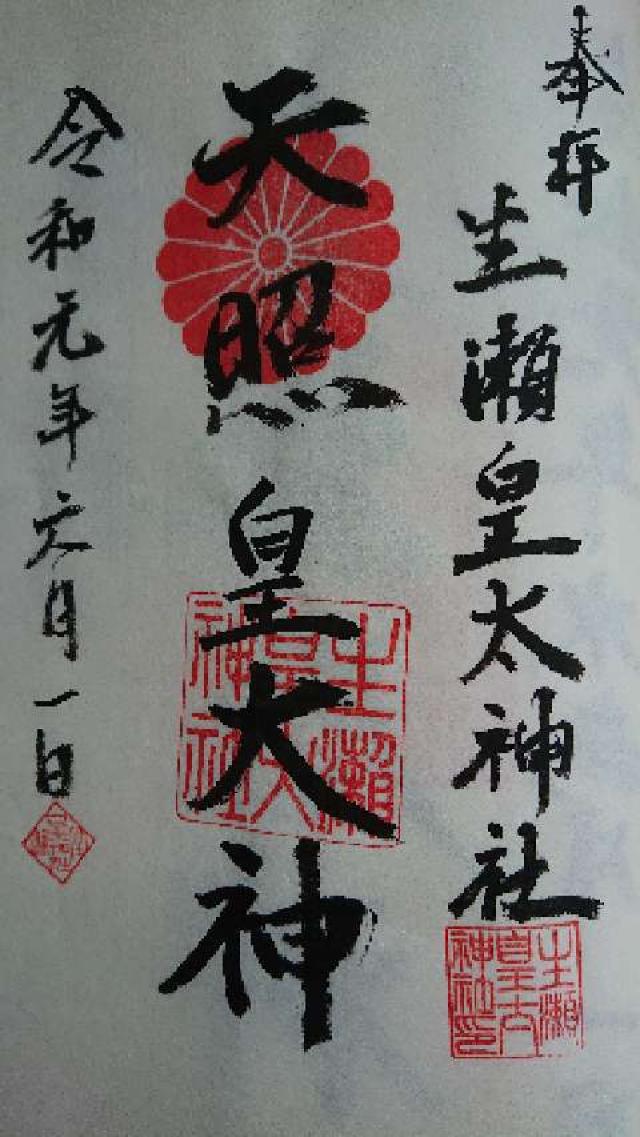 奉拝
生瀬皇太神社
生瀬皇太神社印
天照皇大神
生瀬皇太神社
令和元年六月一日